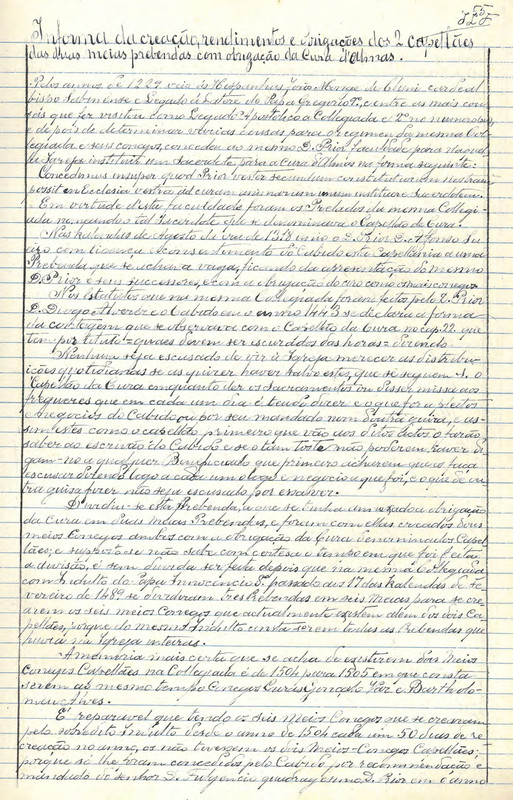 55
Informa da creação, rendimentos e obrigações dos 2 capellães
das duas meias prebendas com obrigação da Cura d'Almas.
Pelos annos de 1229 veio ás Hespanhas João Monge de Cluni cardeal
bispo Sabinense e Legado á Latere do Papa Gregorio 9º, e entre as mais cou
sas que fez visitou como Legado Apostolico a Collegiada e
e depois de determinar várias cousas para o regimen da mesma Col
legiada e seus conegos, concedeu ao mesmo D. Prior faculdade para n'aquel
la Igreja instituir um Sacerdote para a Cura d'Almas na forma seguinte
Concedimus insuper quod Prior vester secundum constitutionem nostram
possit in Ecclesia vestra ad curam animarum unum instituere Sacerdotem.
Em virtude d'esta faculdade foram os Prelados da mesma Collegi
ada nomeando o tal Sacerdote que se denominava o Capellão da Cura.
Nas kalendas de Agosto da era de 13 uniu o D. Prior D. Affonso Su
eiro com licença e consentimento do Cabido esta Capellania a uma
Prebenda que se achava vaga, ficando da apresentação do mesmo
D. Prior e seus successores, e com a obrigação do côro como os mais conegos.
Nos Estatutos que na mesma Collegiada foram feitos pelo D. Prior
D. Diogo Alvares e o Cabido em o anno 1443 se declara a forma
da contagem que se observava com o Capellão da Cura no cap. 22 que
tem por titulo = quaes devem ser escusados das horas = dizendo:
Nenhum seja escusado de vir á Igreja merecer as distribu
ições quotidianas se as quizer haver salvo estes, que se seguem: 1º o
Capellão da Cura emquanto der os Sacramentos ou disser missa aos
freguezes que em cada um dia é teudo dizer e o que for a pleitos
e negocios do Cabido ou por seu mandado nom d'outra guiza, e as
sim estes como o capellão primeiro que vão aos ditos autos o farão
saber ao escrivão do Cabido e se o tam toste não poderem haver di
gam-no a qualquer Beneficiado que primeiro acharem que os faça
escusar dizendo logo a cada um o logo e negocio a que foi, e o que de ou
tra guisa fizer não seja escusado por escaver.
Dividiu-se esta Prebenda, a que se tinha annexado a obrigação
da Cura em duas Meias Prebendas, e foram com ellas creados dous
meios Conegos ambos com a obrigação da Cura denominados Capel
lães; e supposto se não sabe com certeza o tempo em que foi feita
a divisão, é sem duvida ser feita depois que na mesma Collegiada
com Indulto do Papa Innocencio 8º passado aos 17 das kalendas de Fe
vereiro de 148 se dividiram tres Prebendas em seis meias para se cre
arem os seis meios Conegos que actualmente existem alem dos dois Ca
pellães, porque do mesmo Indulto consta serem todas as Prebendas que
havia na Igreja inteiras.
A memoria mais certa que se acha de existirem dois Meios
conegos Capellães na Collegiada é de 1504 para 1505 em que consta
serem ao mesmo tempo Conegos Curas Gonçalo Vaz e Bartholo
meu Alves.
É reparavel que tendo os seis Meios Conegos que se crearam
pelo sobredito Indulto desde o anno de 1504 cada um 50 dias de re
creação no anno, os não tivessem os dois Meios-Conegos Capellães;
porque só lhe foram concedidos pelo Cabido por recommendação e
mandado do senhor D. Fulgencio quadragesimo D. Prior em o anno